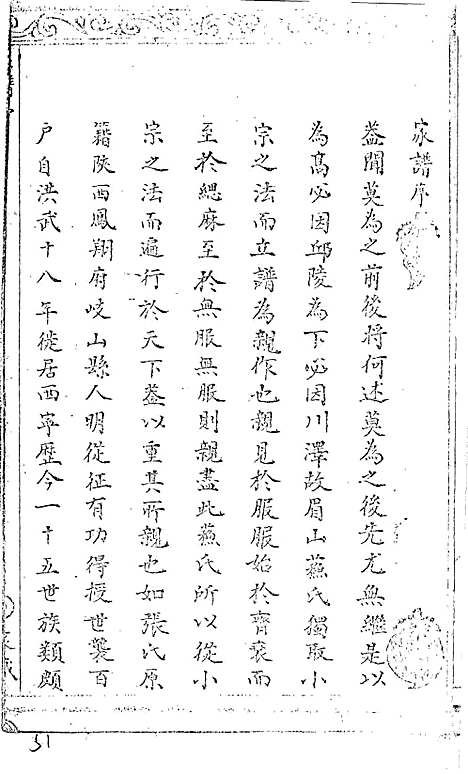 家譜序
盖聞莫為之前後將何述莫為之後先尤無繼是以
為髙必因邱陵為下必因川澤故眉山蘓氏獨取小
宗之法而立譜為親作也親見於服服始於齊衰而
至於緦麻至於無服無服則親盡此蘓氏所以從小
宗之法而遍行於天下盖以重其所親也如張氏原
籍陝西鳳翔府岐山縣人明從征有功得授世襲百
户自洪武十八年徙居西寧歷今一十五世族類頗
31